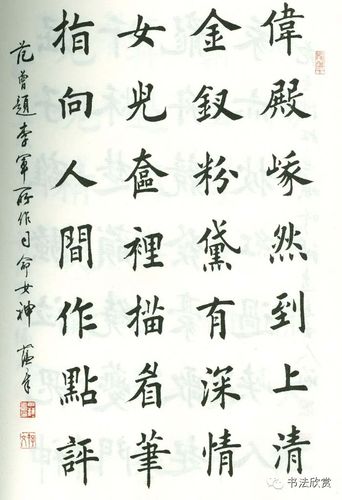 偉殿峰然到上清
金釵粉黛有深情
女兒奩裡描眉筆
指向人間作點評
范曾題李軍所作司命女神
书法欣赏